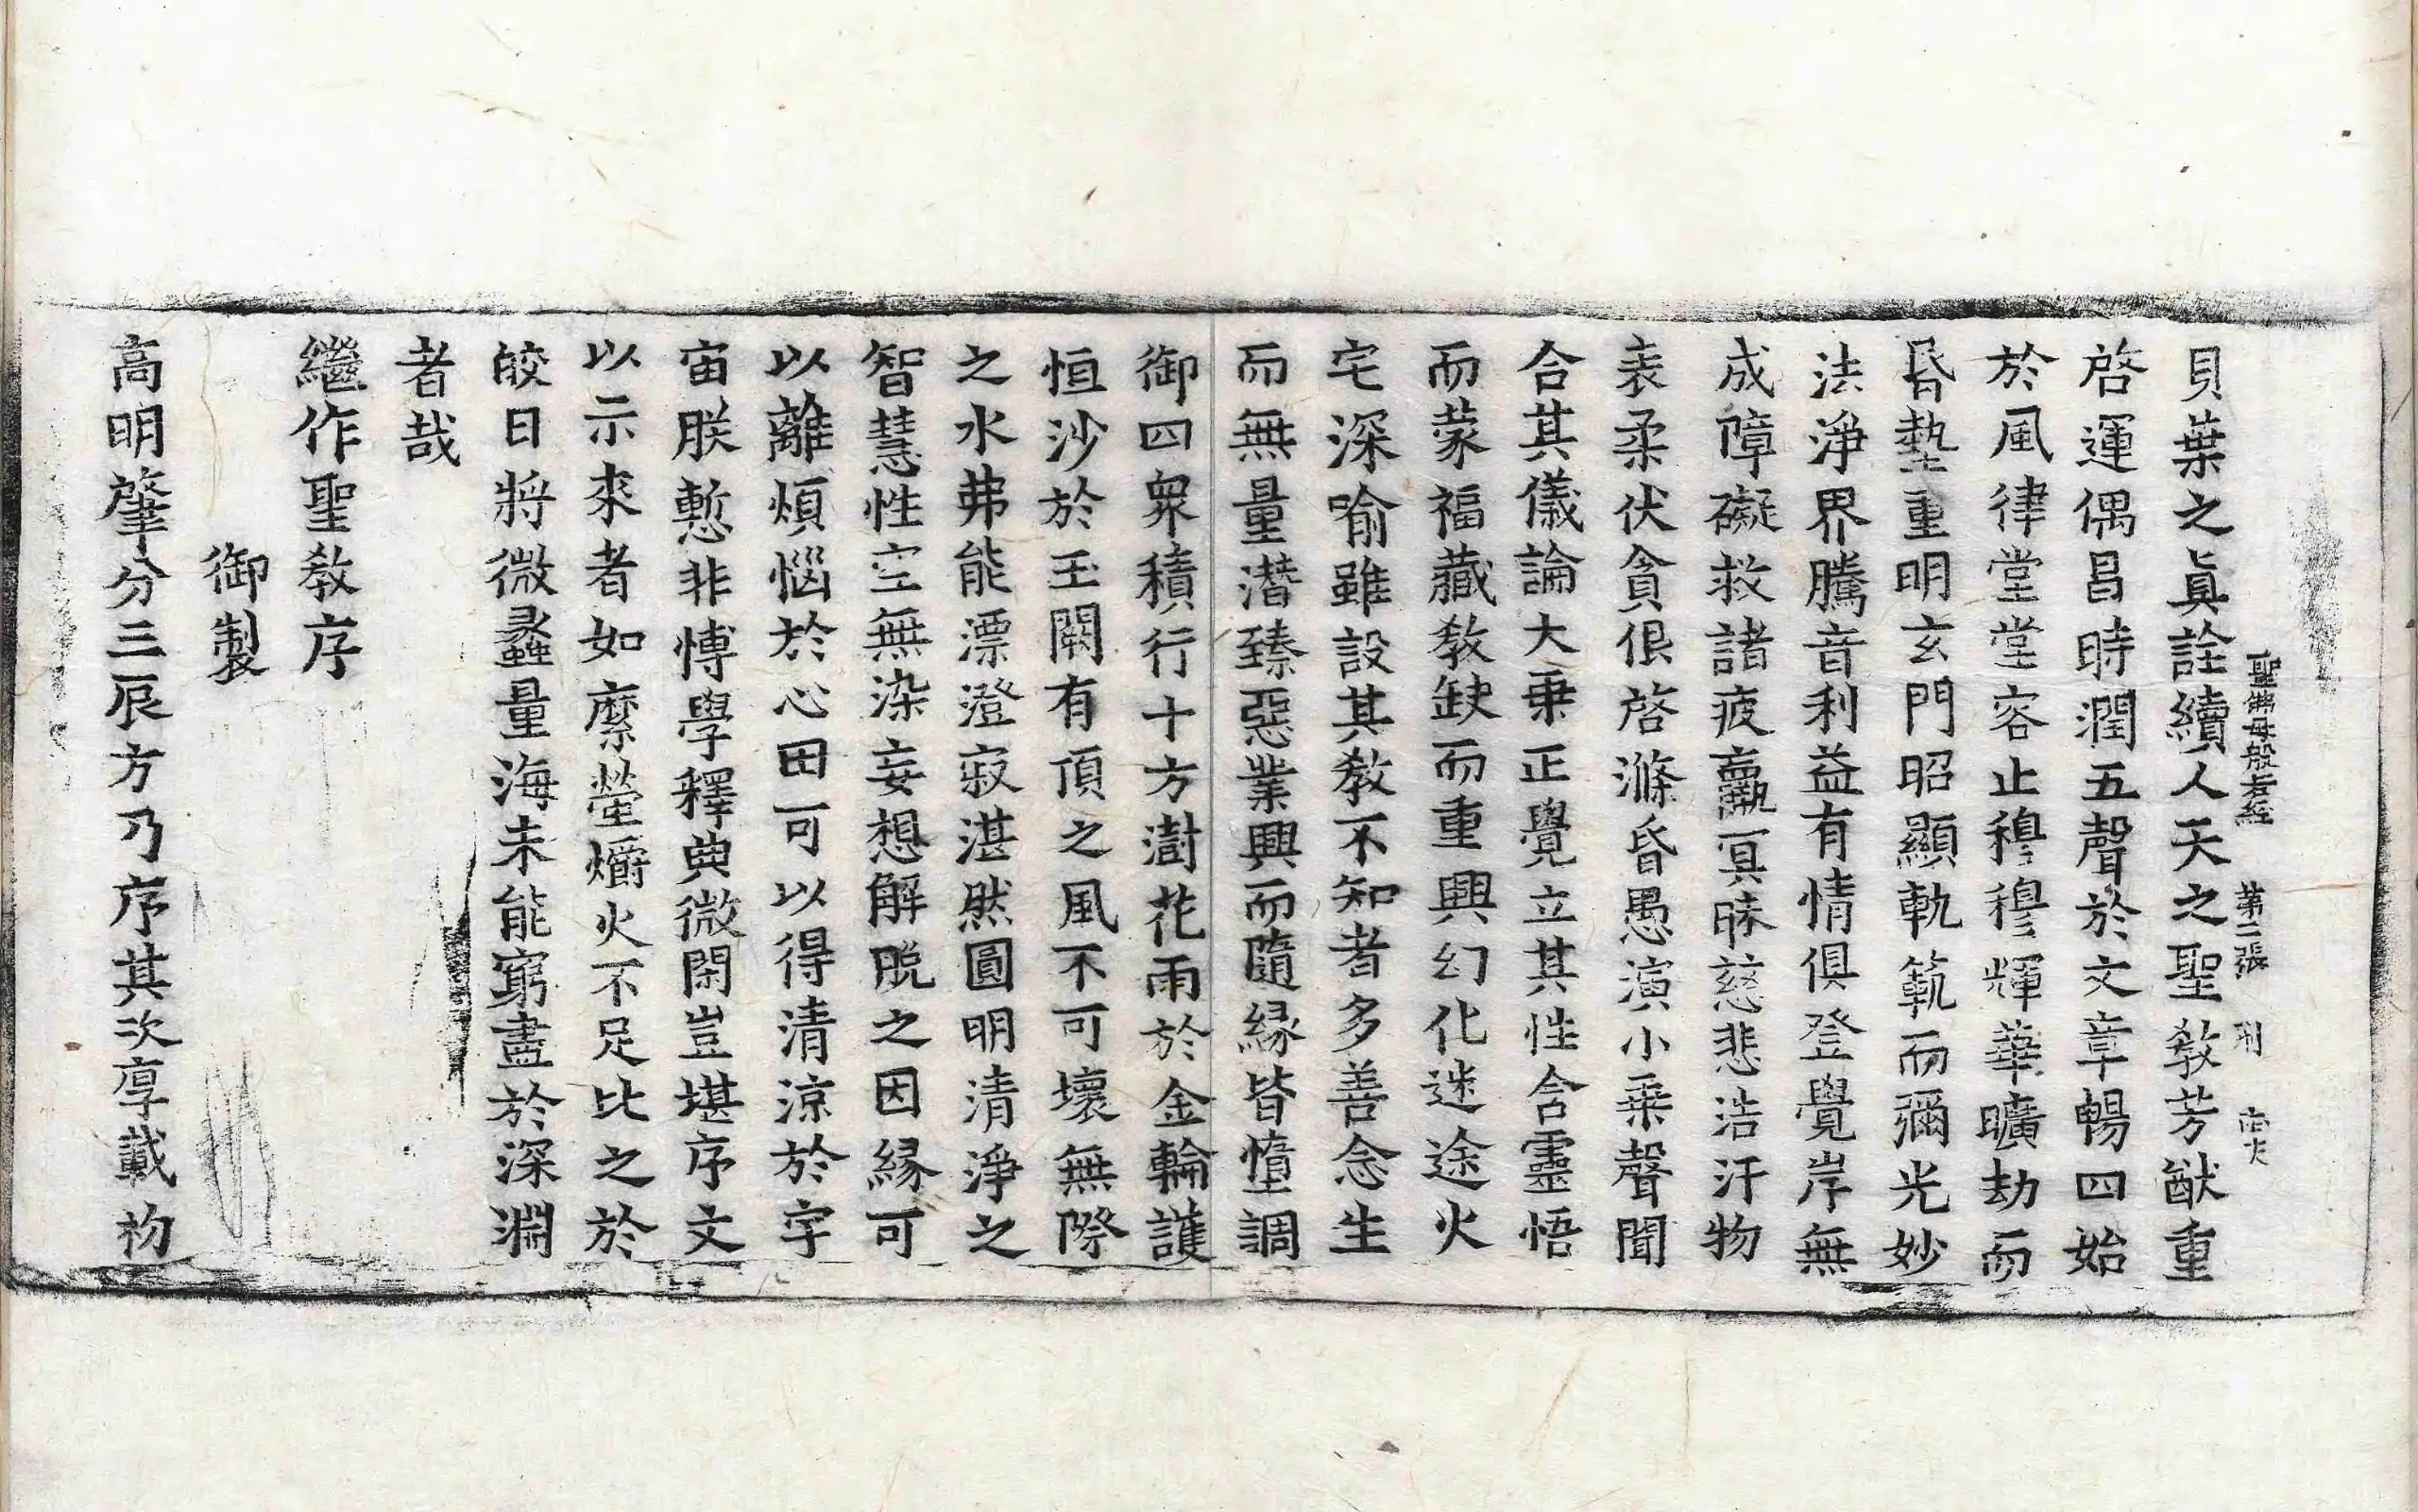 聖佛母般若經 第二張 刑
貝葉之眞詮續人天之聖教芳猷重
啓運偶昌時潤五聲於文章暢四始
於風律堂堂容止穆穆輝華曠劫而
昏墊重明玄門昭顯軌範而彌光妙
法淨界騰音利益有情俱登覺岸無
成障礙救諸疲羸冥昧慈悲浩汗物
表柔伏貪佷啓滌昏愚演小乘聲聞
合其儀論大乗正覺立其性含靈悟
而蒙福藏教缺而重興幻化迷途火
宅深喻雖設其教不知者多善念生
而無量潛臻惡業興而隨緣皆憜調
御四衆積行十方澍花雨於金輪護
恒沙於玉闕有頂之風不可壞無際
之水弗能漂澄寂湛然圓明清淨之
智慧性空無染妄想解脫之因緣可
以離煩惱於心田可以得清涼於宇
宙朕慙非愽學釋典微閑豈堪序文
以示來者如縻螢爝火不足比之於
皎日將微蠡量海未能窮盡於深淵
者哉
繼作聖教序
御製
高明肇分三辰方乃序其次厚載初